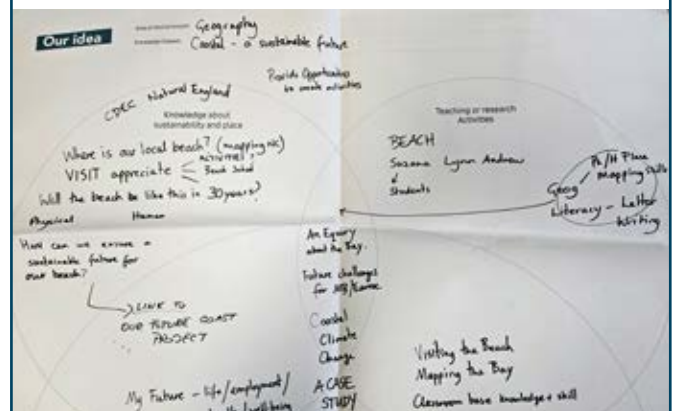 Our idea
Geography
Coastal - a sustainable future
Provide Opportunities
to create activities
CDEC Natural England
Knowledge about
sustainability and place
Where is our local beach? (mapping
VISIT appreciate
ACTIVITIES
Beach School
Will the beach be like this in 30 years?
Physical Human
How can we ensure a
sustainable future for
our beach?
LINK TO
OUR FUTURE COAST
PROJECT
My Future - life/employment/
Teaching or research
Activities
BEACH
Suzana Lynn Andrew
&
Students
Geog
Ph/H Place
Mapping Skills
Literacy - Letter
Writing
An Enquiry
about the Bay.
Future challenges
for
Coastal
Climate
Change
A CASE
STUDY
Visiting the Beach
Mapping the Bay
Classroom base knowledge + skill